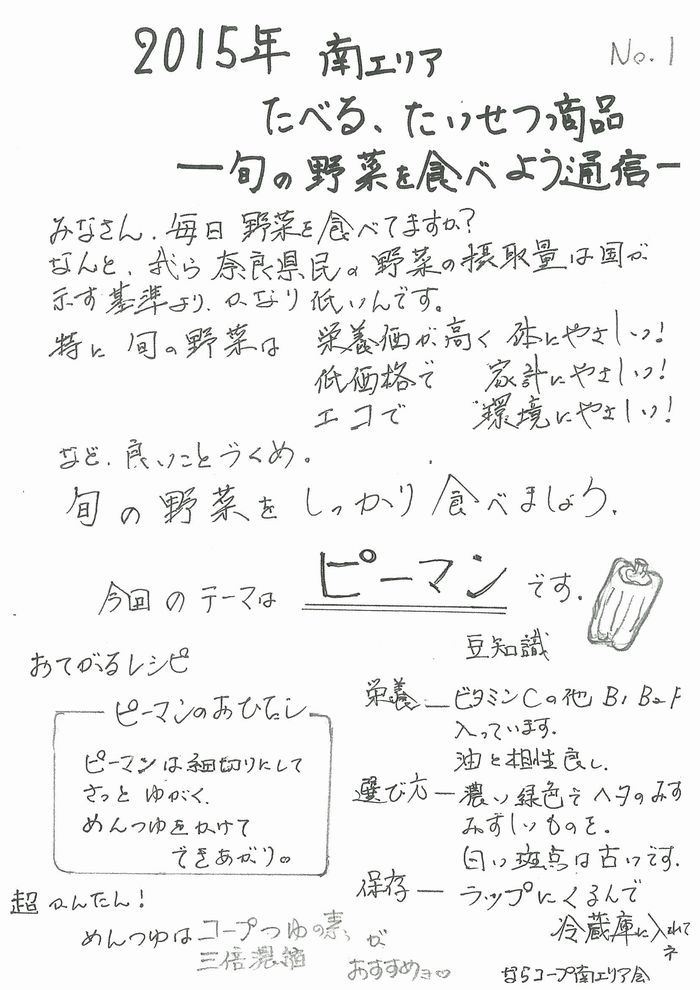 2015年 南エリア
No.1
たべる、たいせつ商品
ー旬の野菜を食べよう通信ー
みなさん、毎日 野菜を食べてますか?
なんと、我ら 奈良県民の 野菜の摂取量は国が
示す基準より、かなり低いんです。
特に 旬の野菜は 栄養価が高く 体にやさしいっ!
低価格で 家計にやさしいっ!
エコで 環境にやさしいっ!
など、良いことづくめ。
旬の野菜をしっかり食べましょう.
今回のテーマは ピーマン です.
おてがるレシピ
ピーマンのおひたし
ピーマンは細切りにして
さっと ゆがく.
めんつゆをかけて
できあがり。
超 かんたん!
めんつゆは コープつゆの素、
三倍濃縮 が
おすすめョ♡
豆知識
栄養 ー ビタミンCの他 B1 B2 F
入っています.
油と相性良し.
選び方 ー 濃い緑色で ヘタのみず
みずしいものを.
白い斑点は古いです.
保存 ー ラップにくるんで
冷蔵庫に入れて
ネ
ならコープ南エリア会